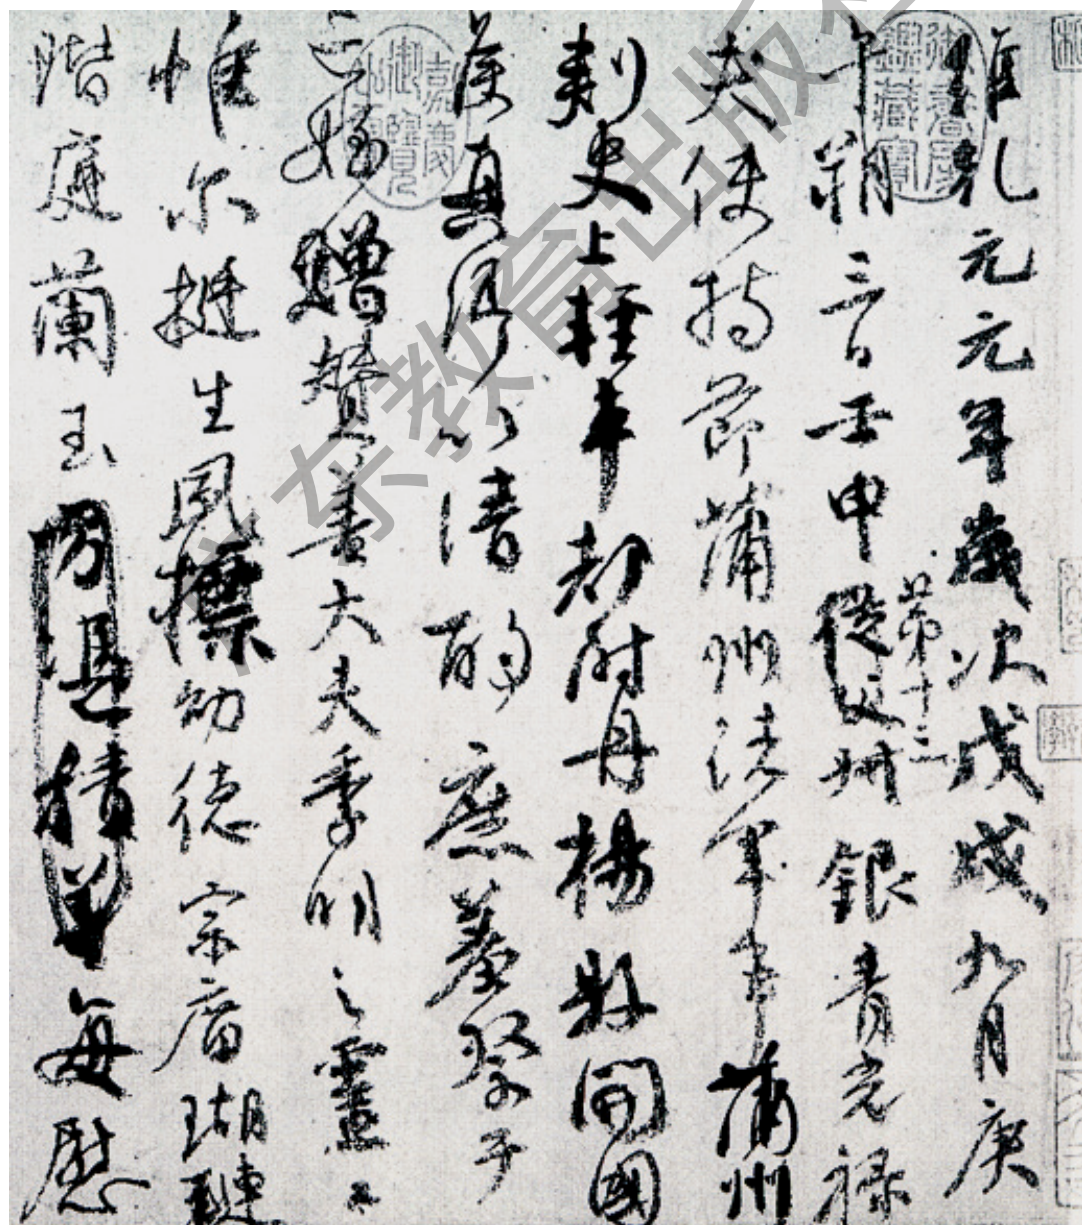 維乾元元年歲次戊戌九月庚
午朔三日壬申從父
第十三
叔銀青光祿
夫使持節蒲州諸軍事蒲州
刺史上輕車都尉丹楊縣開國
侯真卿以清酌庶羞祭于
亡姪贈贊善大夫季明之靈曰
惟尔挺生夙標幼德宗廟瑚璉
階庭蘭玉方憑積善每慰
御書房鑑藏寶
嘉慶御覽之寶
东教育出版社